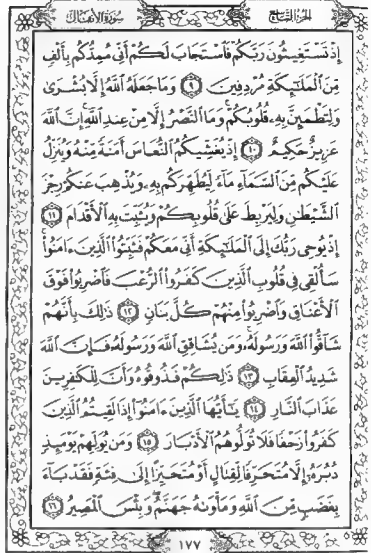 الجزء التاسع
سورة الأنفال
إِذْ تَسْتَغِيثُونَ رَبَّكُمْ فَٱسْتَجَابَ لَكُمْ أَنِّى مُمِدُّكُم بِأَلْفٍ
مِّنَ ٱلْمَلَٰٓئِكَةِ مُرْدِفِينَ ٩ وَمَا جَعَلَهُ ٱللَّهُ إِلَّا بُشْرَىٰ
وَلِتَطْمَئِنَّ بِهِۦ قُلُوبُكُمْ ۚ وَمَا ٱلنَّصْرُ إِلَّا مِنْ عِندِ ٱللَّهِ ۚ إِنَّ ٱللَّهَ
عَزِيزٌ حَكِيمٌ ١٠ إِذْ يُغَشِّيكُمُ ٱلنُّعَاسَ أَمَنَةً مِّنْهُ وَيُنَزِّلُ
عَلَيْكُم مِّنَ ٱلسَّمَآءِ مَآءً لِّيُطَهِّرَكُم بِهِۦ وَيُذْهِبَ عَنكُمْ رِجْزَ
ٱلشَّيْطَٰنِ وَلِيَرْبِطَ عَلَىٰ قُلُوبِكُمْ وَيُثَبِّتَ بِهِ ٱلْأَقْدَامَ ١١
إِذْ يُوحِى رَبُّكَ إِلَى ٱلْمَلَٰٓئِكَةِ أَنِّى مَعَكُمْ فَثَبِّتُوا۟ ٱلَّذِينَ ءَامَنُوا۟ ۚ
سَأُلْقِى فِى قُلُوبِ ٱلَّذِينَ كَفَرُوا۟ ٱلرُّعْبَ فَٱضْرِبُوا۟ فَوْقَ
ٱلْأَعْنَاقِ وَٱضْرِبُوا۟ مِنْهُمْ كُلَّ بَنَانٍ ١٢ ذَٰلِكَ بِأَنَّهُمْ
شَآقُّوا۟ ٱللَّهَ وَرَسُولَهُۥ ۚ وَمَن يُشَاقِقِ ٱللَّهَ وَرَسُولَهُۥ فَإِنَّ ٱللَّهَ
شَدِيدُ ٱلْعِقَابِ ١٣ ذَٰلِكُمْ فَذُوقُوهُ وَأَنَّ لِلْكَٰفِرِينَ
عَذَابَ ٱلنَّارِ ١٤ يَٰٓأَيُّهَا ٱلَّذِينَ ءَامَنُوٓا۟ إِذَا لَقِيتُمُ ٱلَّذِينَ
كَفَرُوا۟ زَحْفًا فَلَا تُوَلُّوهُمُ ٱلْأَدْبَارَ ١٥ وَمَن يُوَلِّهِمْ يَوْمَئِذٍ
دُبُرَهُۥٓ إِلَّا مُتَحَرِّفًا لِّقِتَالٍ أَوْ مُتَحَيِّزًا إِلَىٰ فِئَةٍ فَقَدْ بَآءَ
بِغَضَبٍ مِّنَ ٱللَّهِ وَمَأْوَىٰهُ جَهَنَّمُ ۖ وَبِئْسَ ٱلْمَصِيرُ ١٦
١٧٧